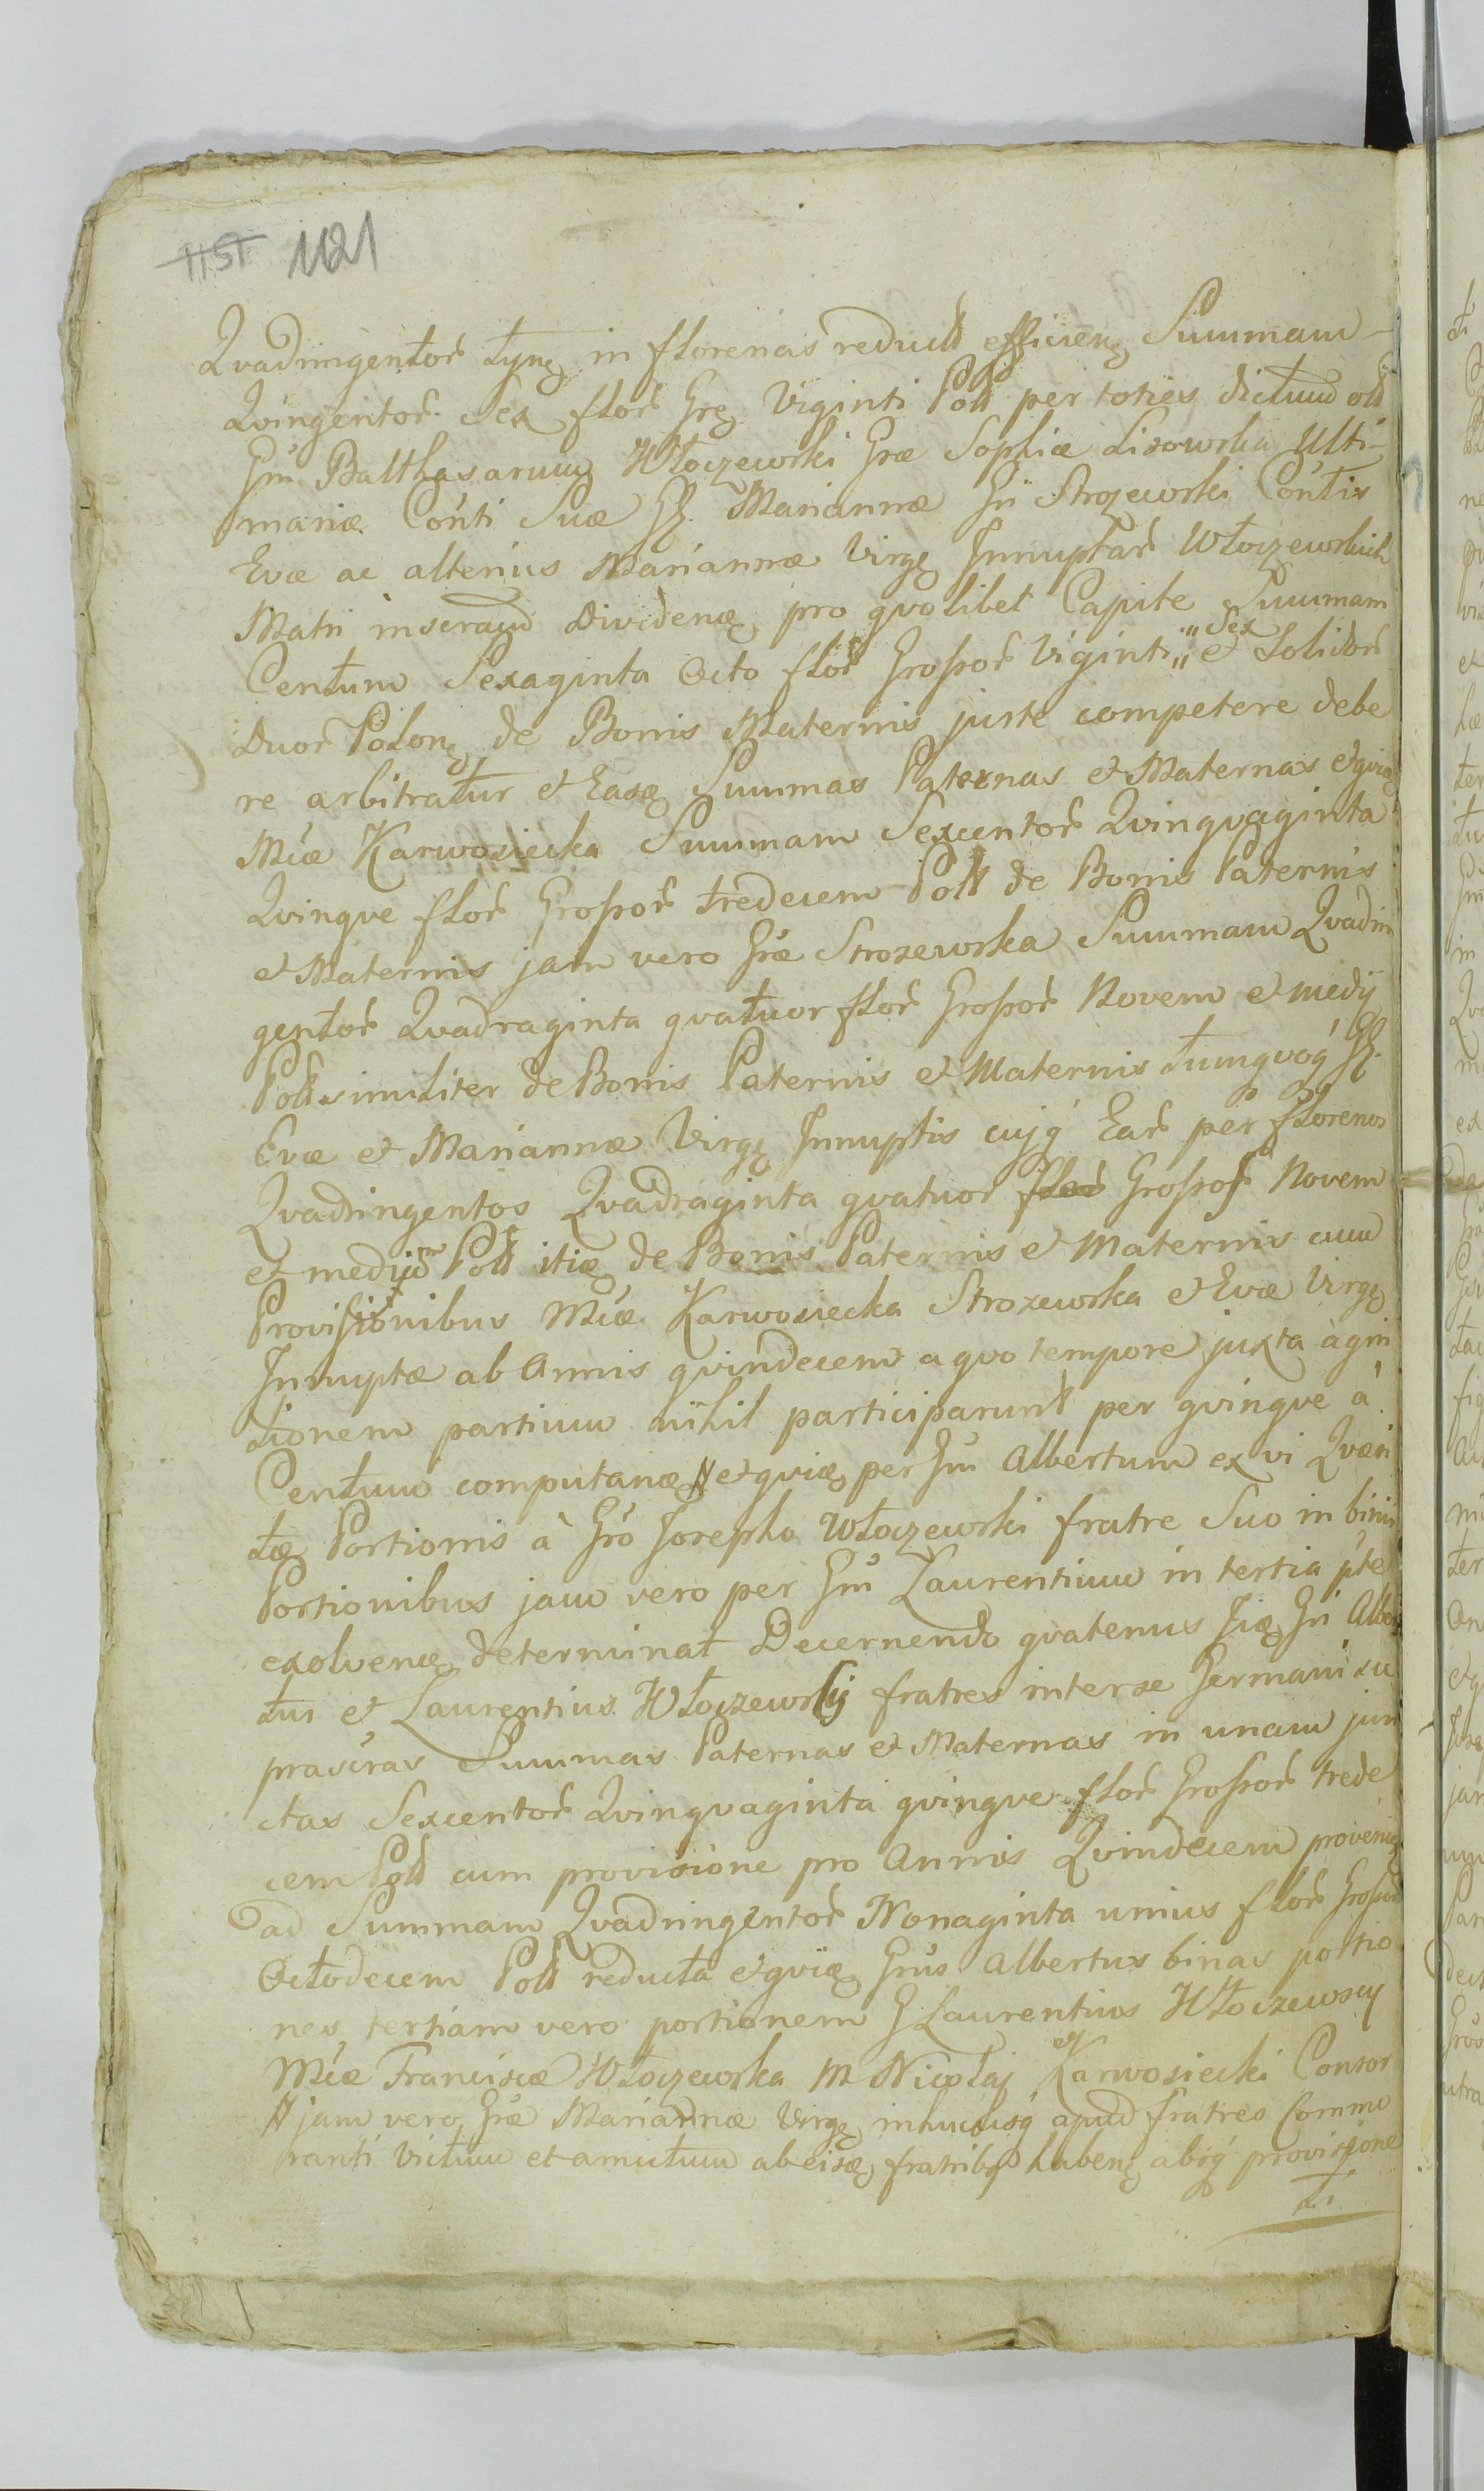 1151 1121
Qvadringentor tynę in florenas reduct efficienę Summam
Qvingentor Sex flor Grę Viginti Poll per toties dictum olł
Gm Balthasarum Włoczewski Græ Sophiæ Lisowska Ulti-
mariæ Cońti Suæ GG. Mariannæ Gń Strozewski Cońtis
Evæ ac alterius Mariannæ Virgę Innuptar Włoczewskich
Matri inserand Dividenæ pro qvolibet Capite Summam
Centum Sexaginta Octo flor Grossor Viginti „ Sex „ et Solidor
Duor Polonę de Bonis Maternis juste competere debe
re arbitratur et Easę Summas Paternas et Maternas etqvię
Mcæ Karwosiecka Summam Sexcentor Qvinqvaginta
Qvinqve flor Grossor tredecem Poll de Bonis Paternis
et Maternis jam vero Græ Strozewska Summam Qvadrin
gentor Qvadraginta qvatuor flor Grossor Novem et medij
Poll similiter de Bonis Paternis et Maternis tumqvoq́ GG.
Evæ et Mariannæ Virgę Innuptis cujq́ Ear per florenos
Qvadringentos Qvadraginta qvatuor flor Grossos Novem
et medium Poll itię de Bonis Paternis et Maternis cum
Provisionibus Mcæ Karwosiecka Strozewska et Evæ Virgę
Innuptæ ab Annis qvindecem a qvo tempore juxta agni
tionem partium nihil participarunt per qvinqve á
Centum computanæ # etqvię per Gm Albertum ex vi Qvæsi
tæ Portionis à Gro Josepho Włoczewski fratre Suo in binis
Portionibus jam vero per Gm Laurentium in tertia pte
exolvenæ determinat Decernendo qvatenus Iię Gń Alber
tus et Laurentius Włoczewscy fratres inter se Germani su
prascras Summas Paternas et Maternas in unam jun
ctas Sexcentor Qvinqvaginta qvinqve flor Grossor trede
cem Poll cum provisione pro Annis Qvindecem provenię
ad Summam Qvadringentor Nonaginta unius flor Grossor
Octodecem Poll reducta etqvię Grus Albertus binas portio
nes tertiam vero portionem G Laurentius Włoczewscy
Mcæ Franciscæ Włoczewska M Nicolaj et Karwosiecki Consor
# jam vero Græ Mariannæ Virgę inhucusq́ apud fratres Commo
ranti victum et amictum ab eisæ fratribq habenę absq́ provisione
ti